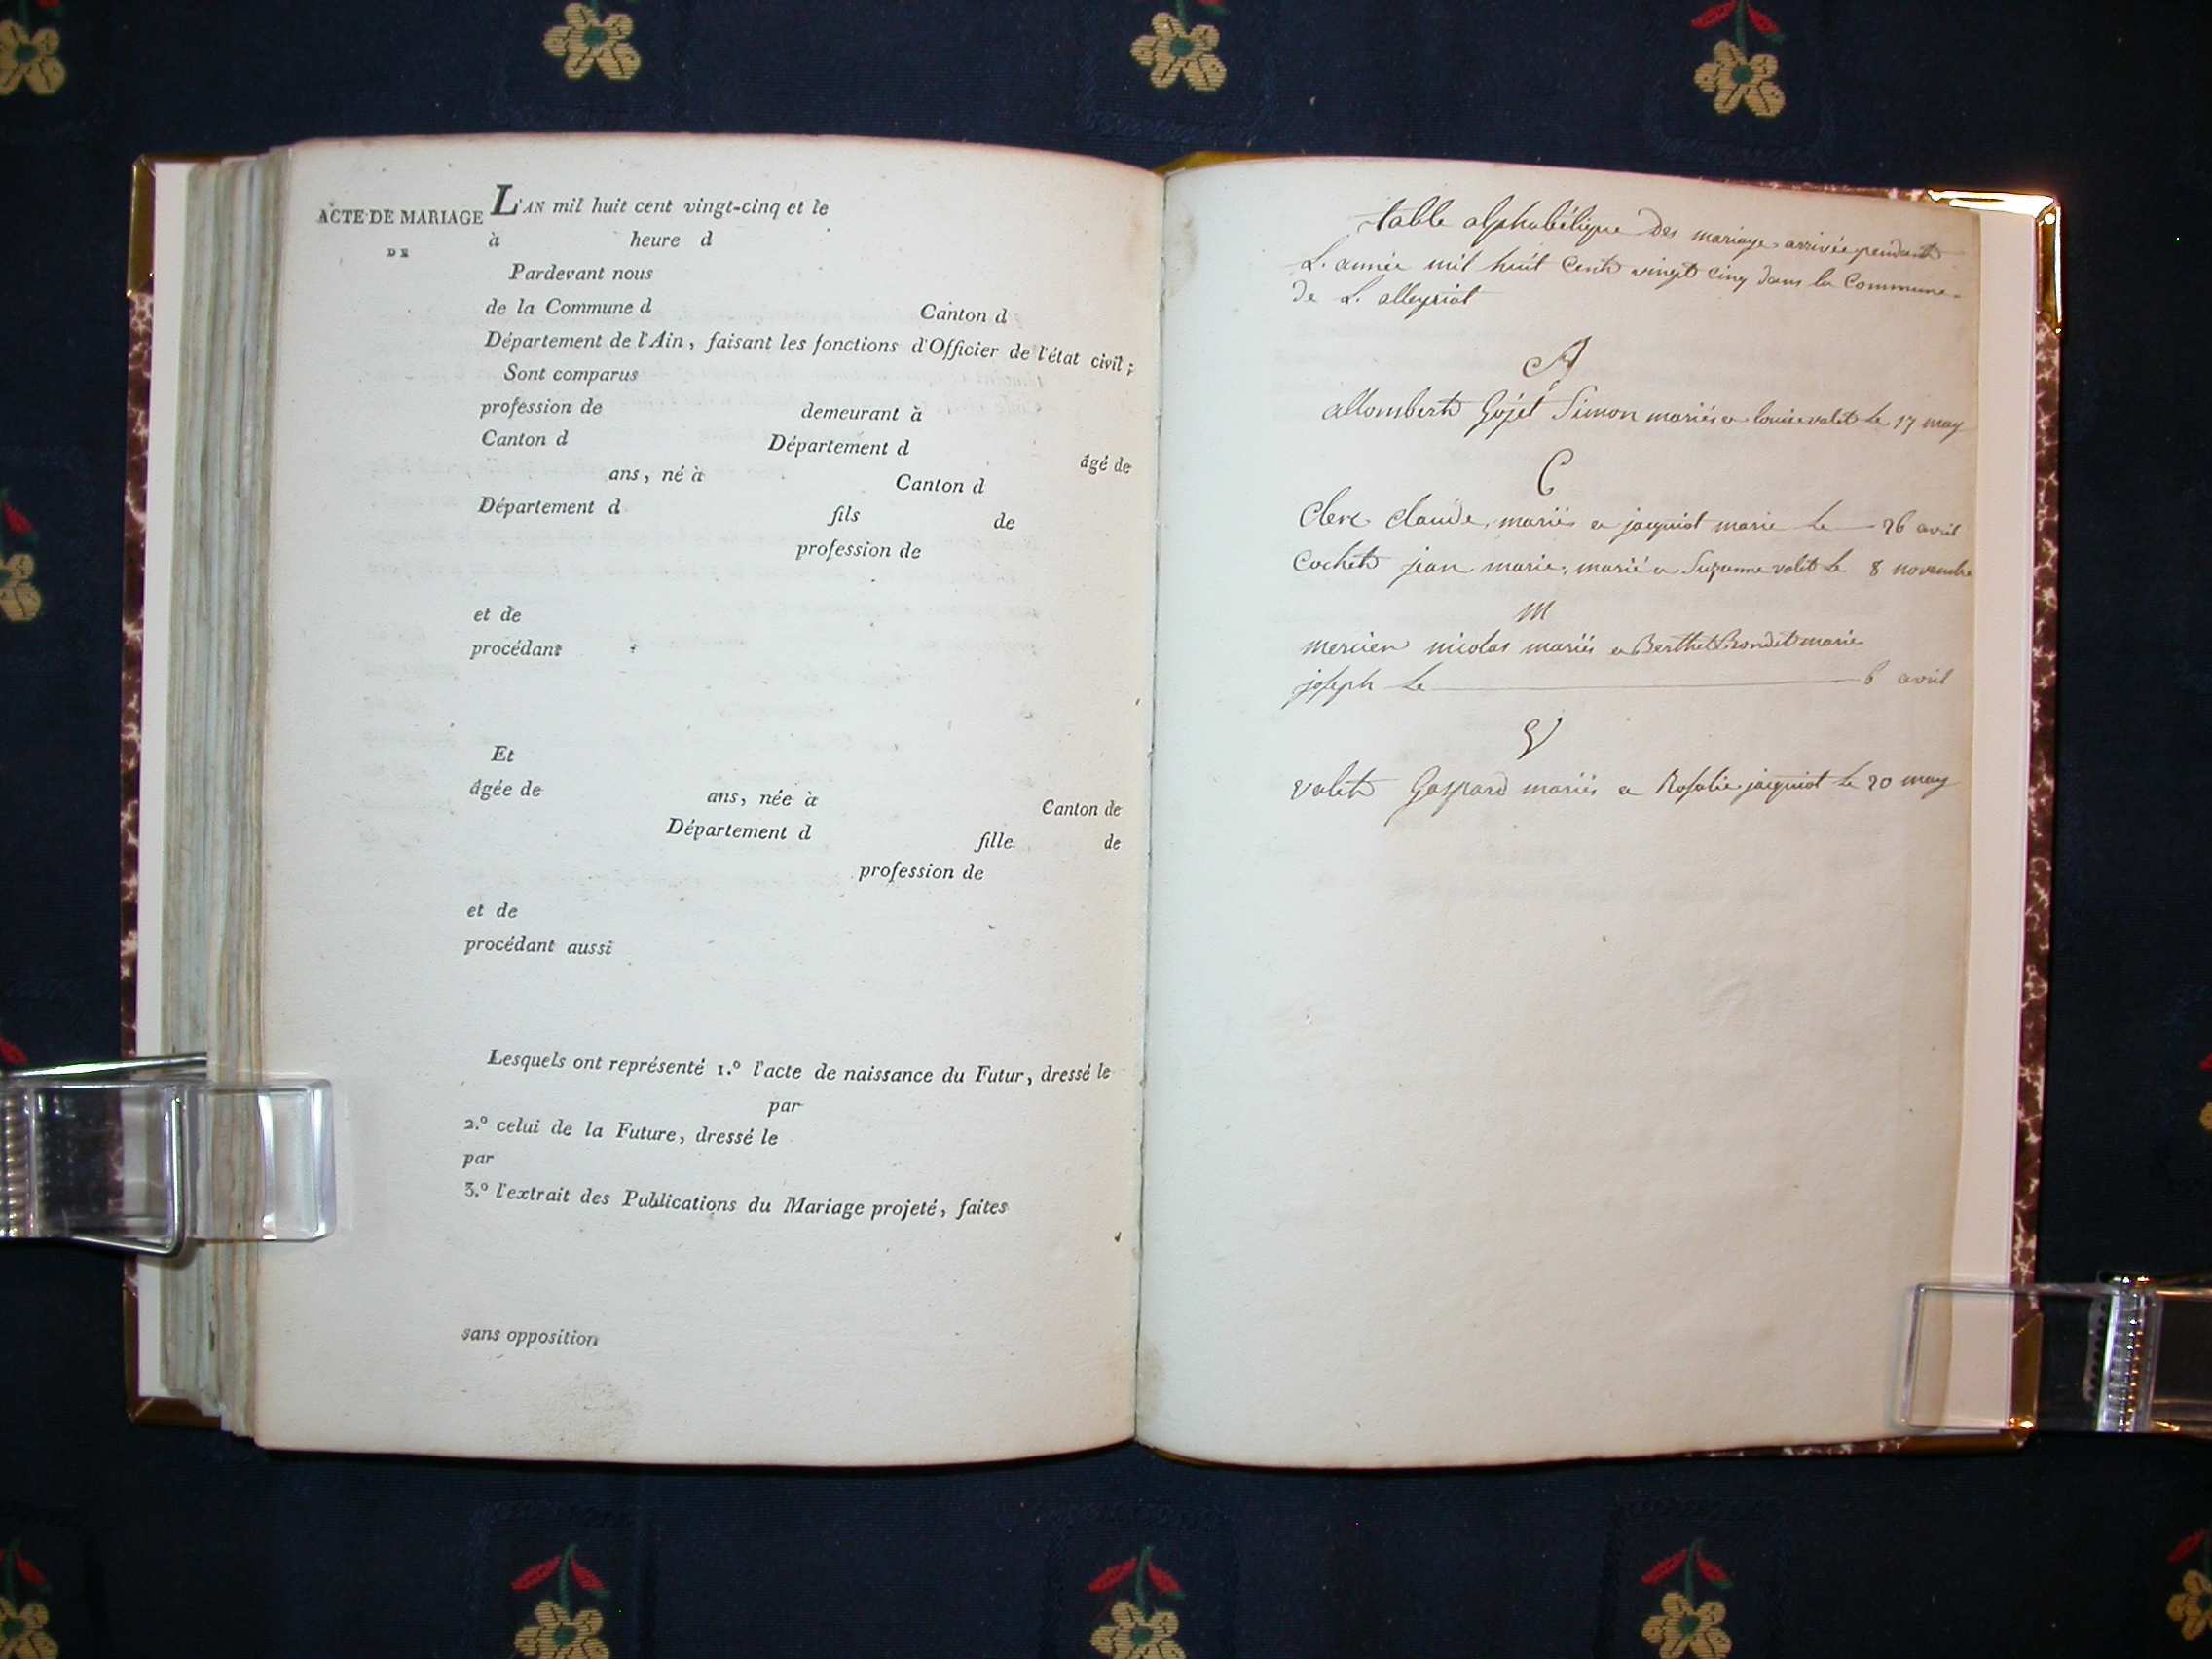 ACTE DE MARIAGE
DE
L'AN mil huit cent vingt-cinq et le
à heure d
Pardevant nous
de la Commune d Canton d
Département de l'Ain, faisant les fonctions d'Officier de l'état civil;
Sont comparus
profession de demeurant à
Canton d Département d âgé de
ans, né à Canton d
Département d fils de
profession de
et de
procédant
Et
âgée de ans, née à Canton de
Département d fille de
profession de
et de
procédant aussi
Lesquels ont représenté 1.º l'acte de naissance du Futur, dressé le
par
2.º celui de la Future, dressé le
par
3.º l'extrait des Publications du Mariage projeté, faites
sans opposition
table alphabétique des mariage arrivée pendant
L. année mil huit Cent vingt cinq dans la Commune
de L. alleyriat
A
allombert Gojet Simon mariés a louise valet le 17 may
C
Clerc claude, mariés a jacquiot marie le 26 avril
Cochet jean marie, marié a Suzanne valet le 8 novembre
M
mercier nicolas mariés a Berthet Bondet marie
joseph le 6 avril
V
valet Gaspard mariés a Rosalie jacquiot le 20 may